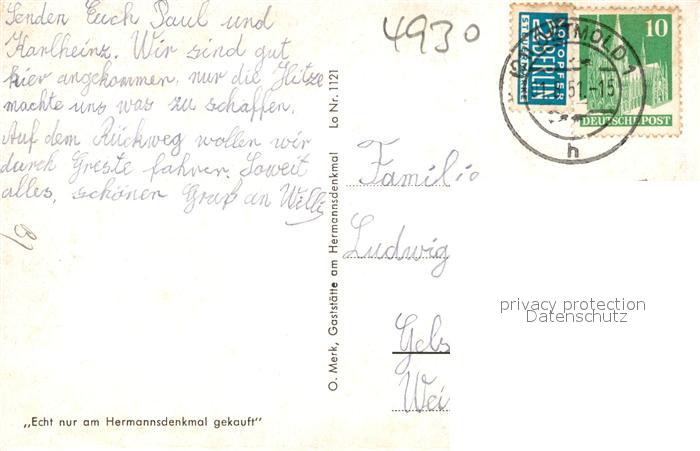 Senden Euch Paul und
Karlheinz. Wir sind gut
hier angekommen, nur die Hitze
machte uns was zu schaffen.
Auf dem Rückweg wollen wir
durch Greste fahren. Soweit
alles, schönen Gruß an Willi
„Echt nur am Hermannsdenkmal gekauft"
O. Merk, Gaststätte am Hermannsdenkmal Lo Nr. 1121
4930
NOTOPFER
2 BERLIN
STEUERMARKE
10
DEUTSCHE POST
DETMOLD 1
51.-15
h
Familie
Ludwig
Gels
Wei
privacy protection
Datenschutz